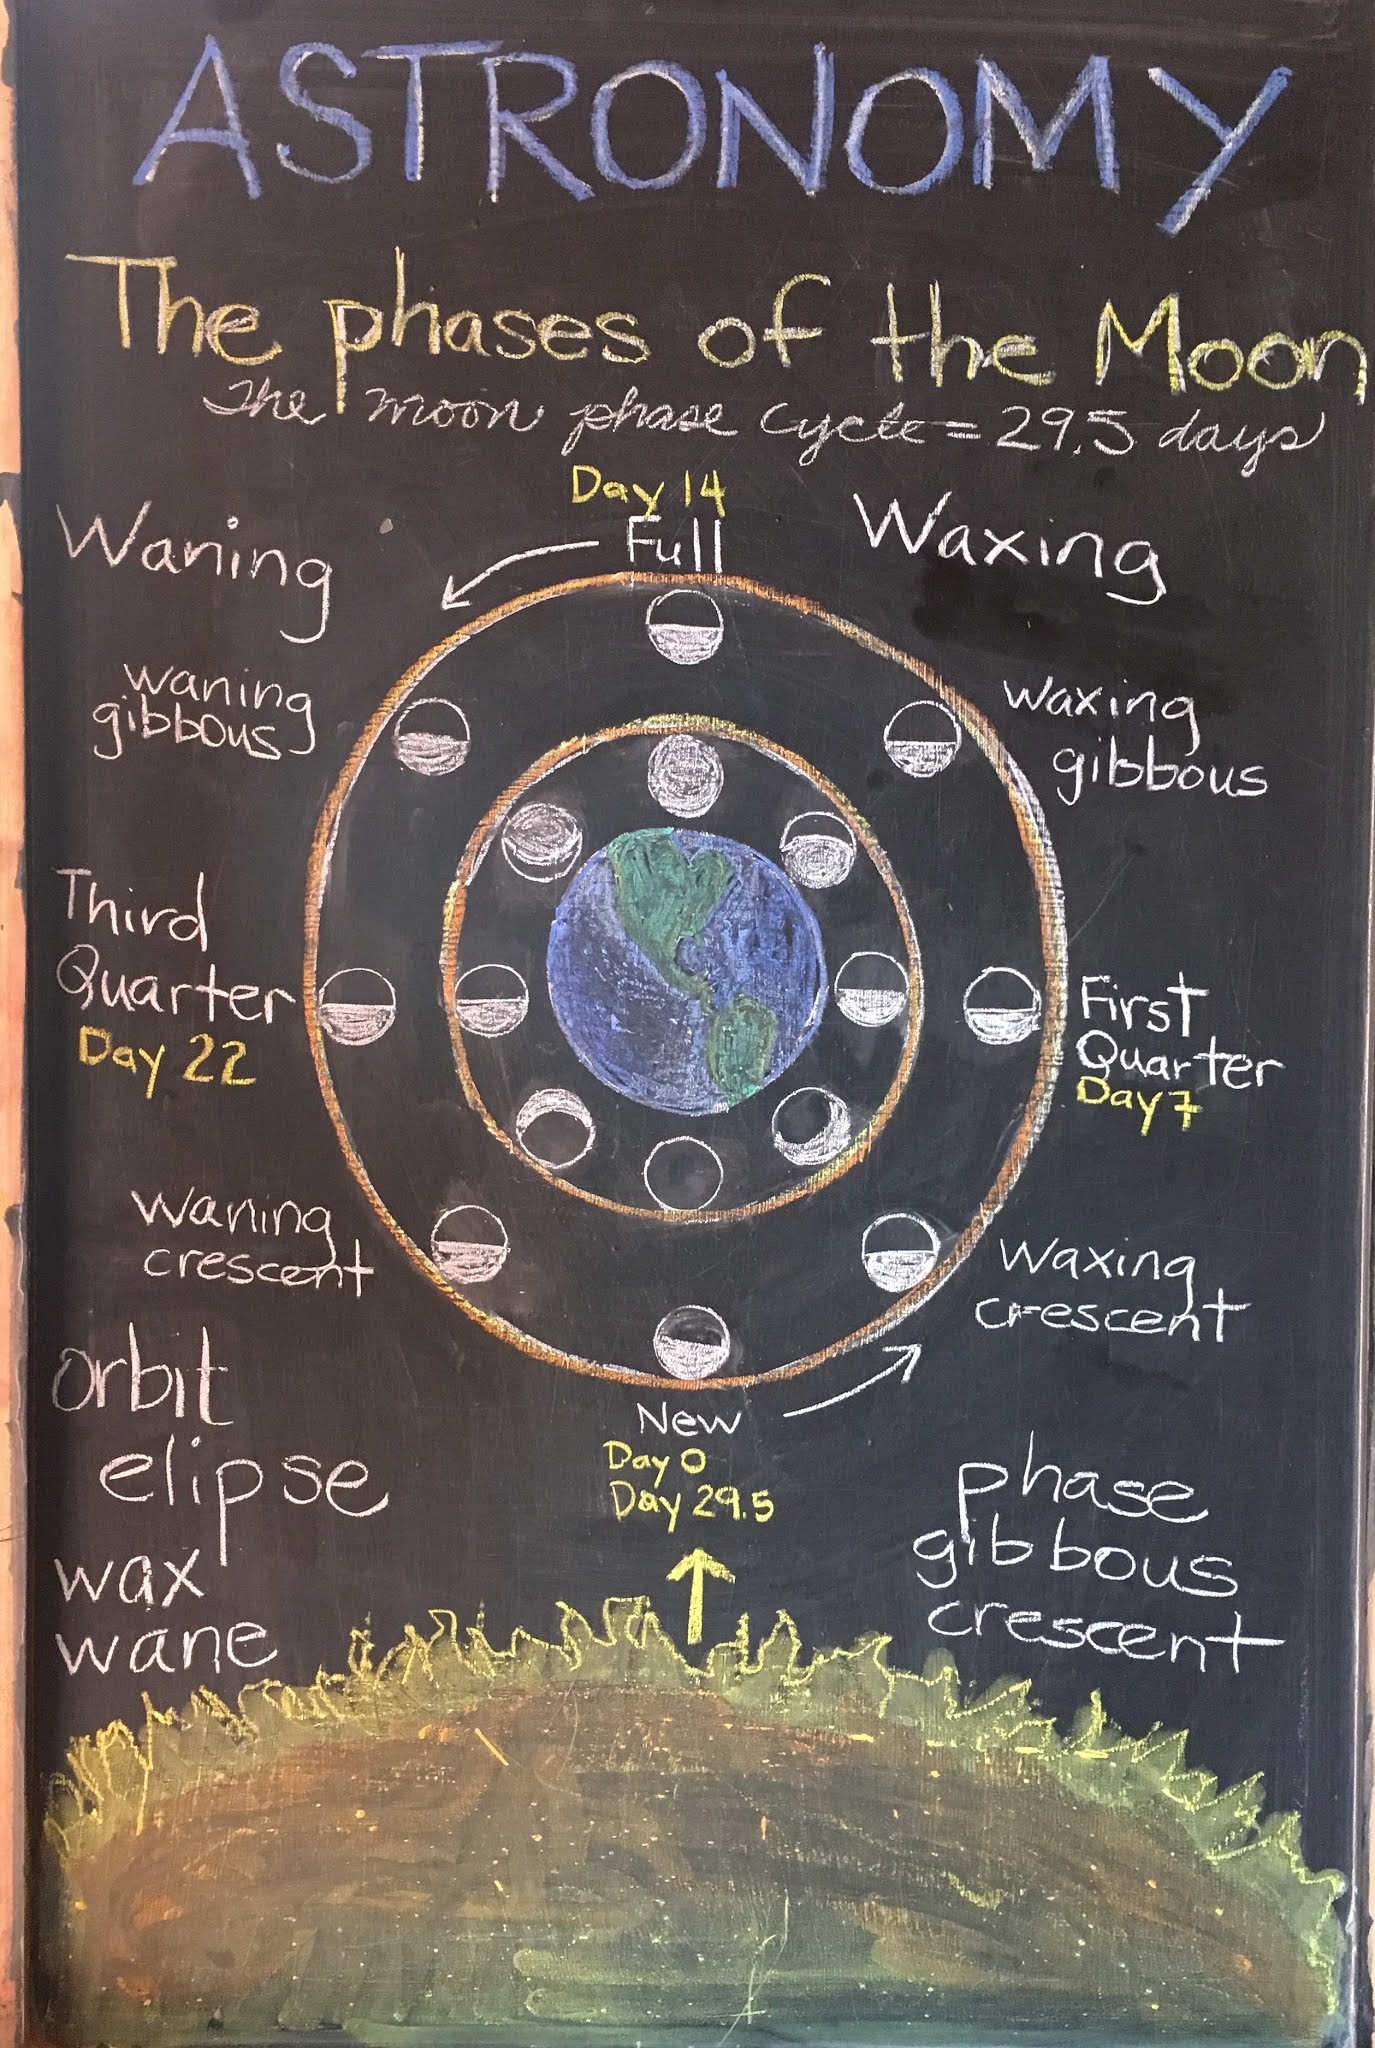 ASTRONOMY
The phases of the Moon
The moon phase cycle = 29.5 days
Day 14
Full
Waning
Waxing
waning
gibbous
waxing
gibbous
Third
Quarter
Day 22
First
Quarter
Day 7
waning
crescent
waxing
crescent
New
Day 0
Day 29.5
orbit
elipse
wax
wane
phase
gibbous
crescent